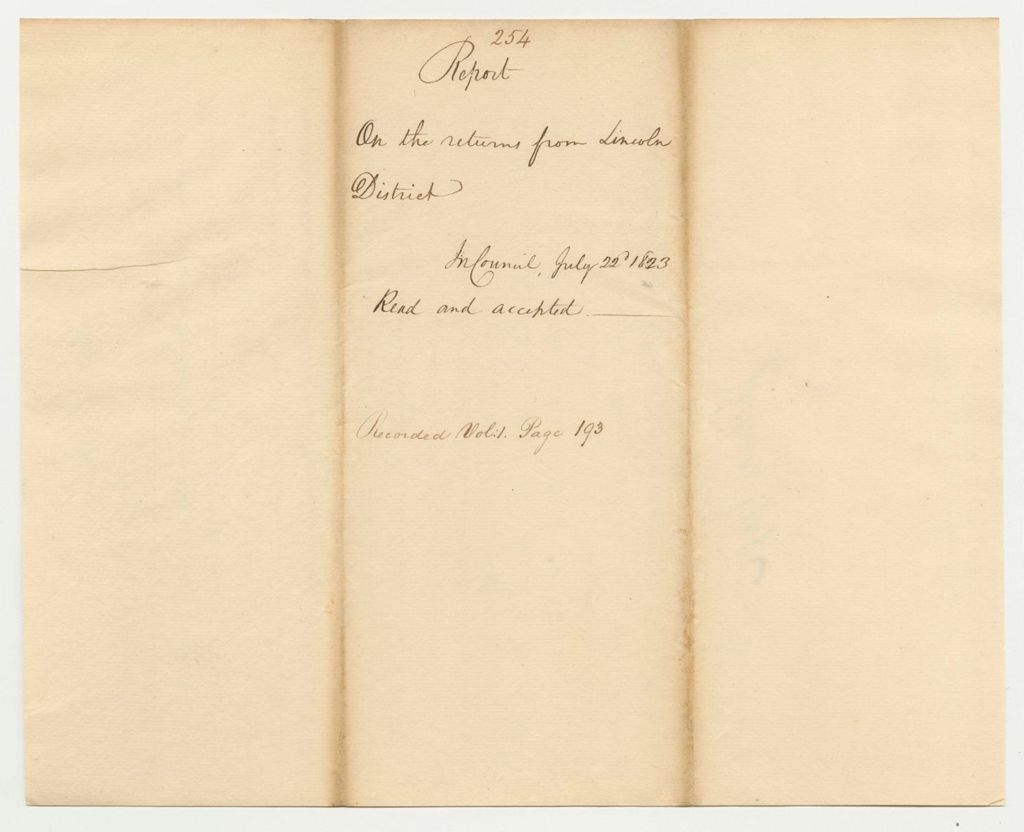 254
Report
On the returns from Lincoln
District
In Council, July 22d 1823
Read and accepted
Recorded Vol: 1. Page 193